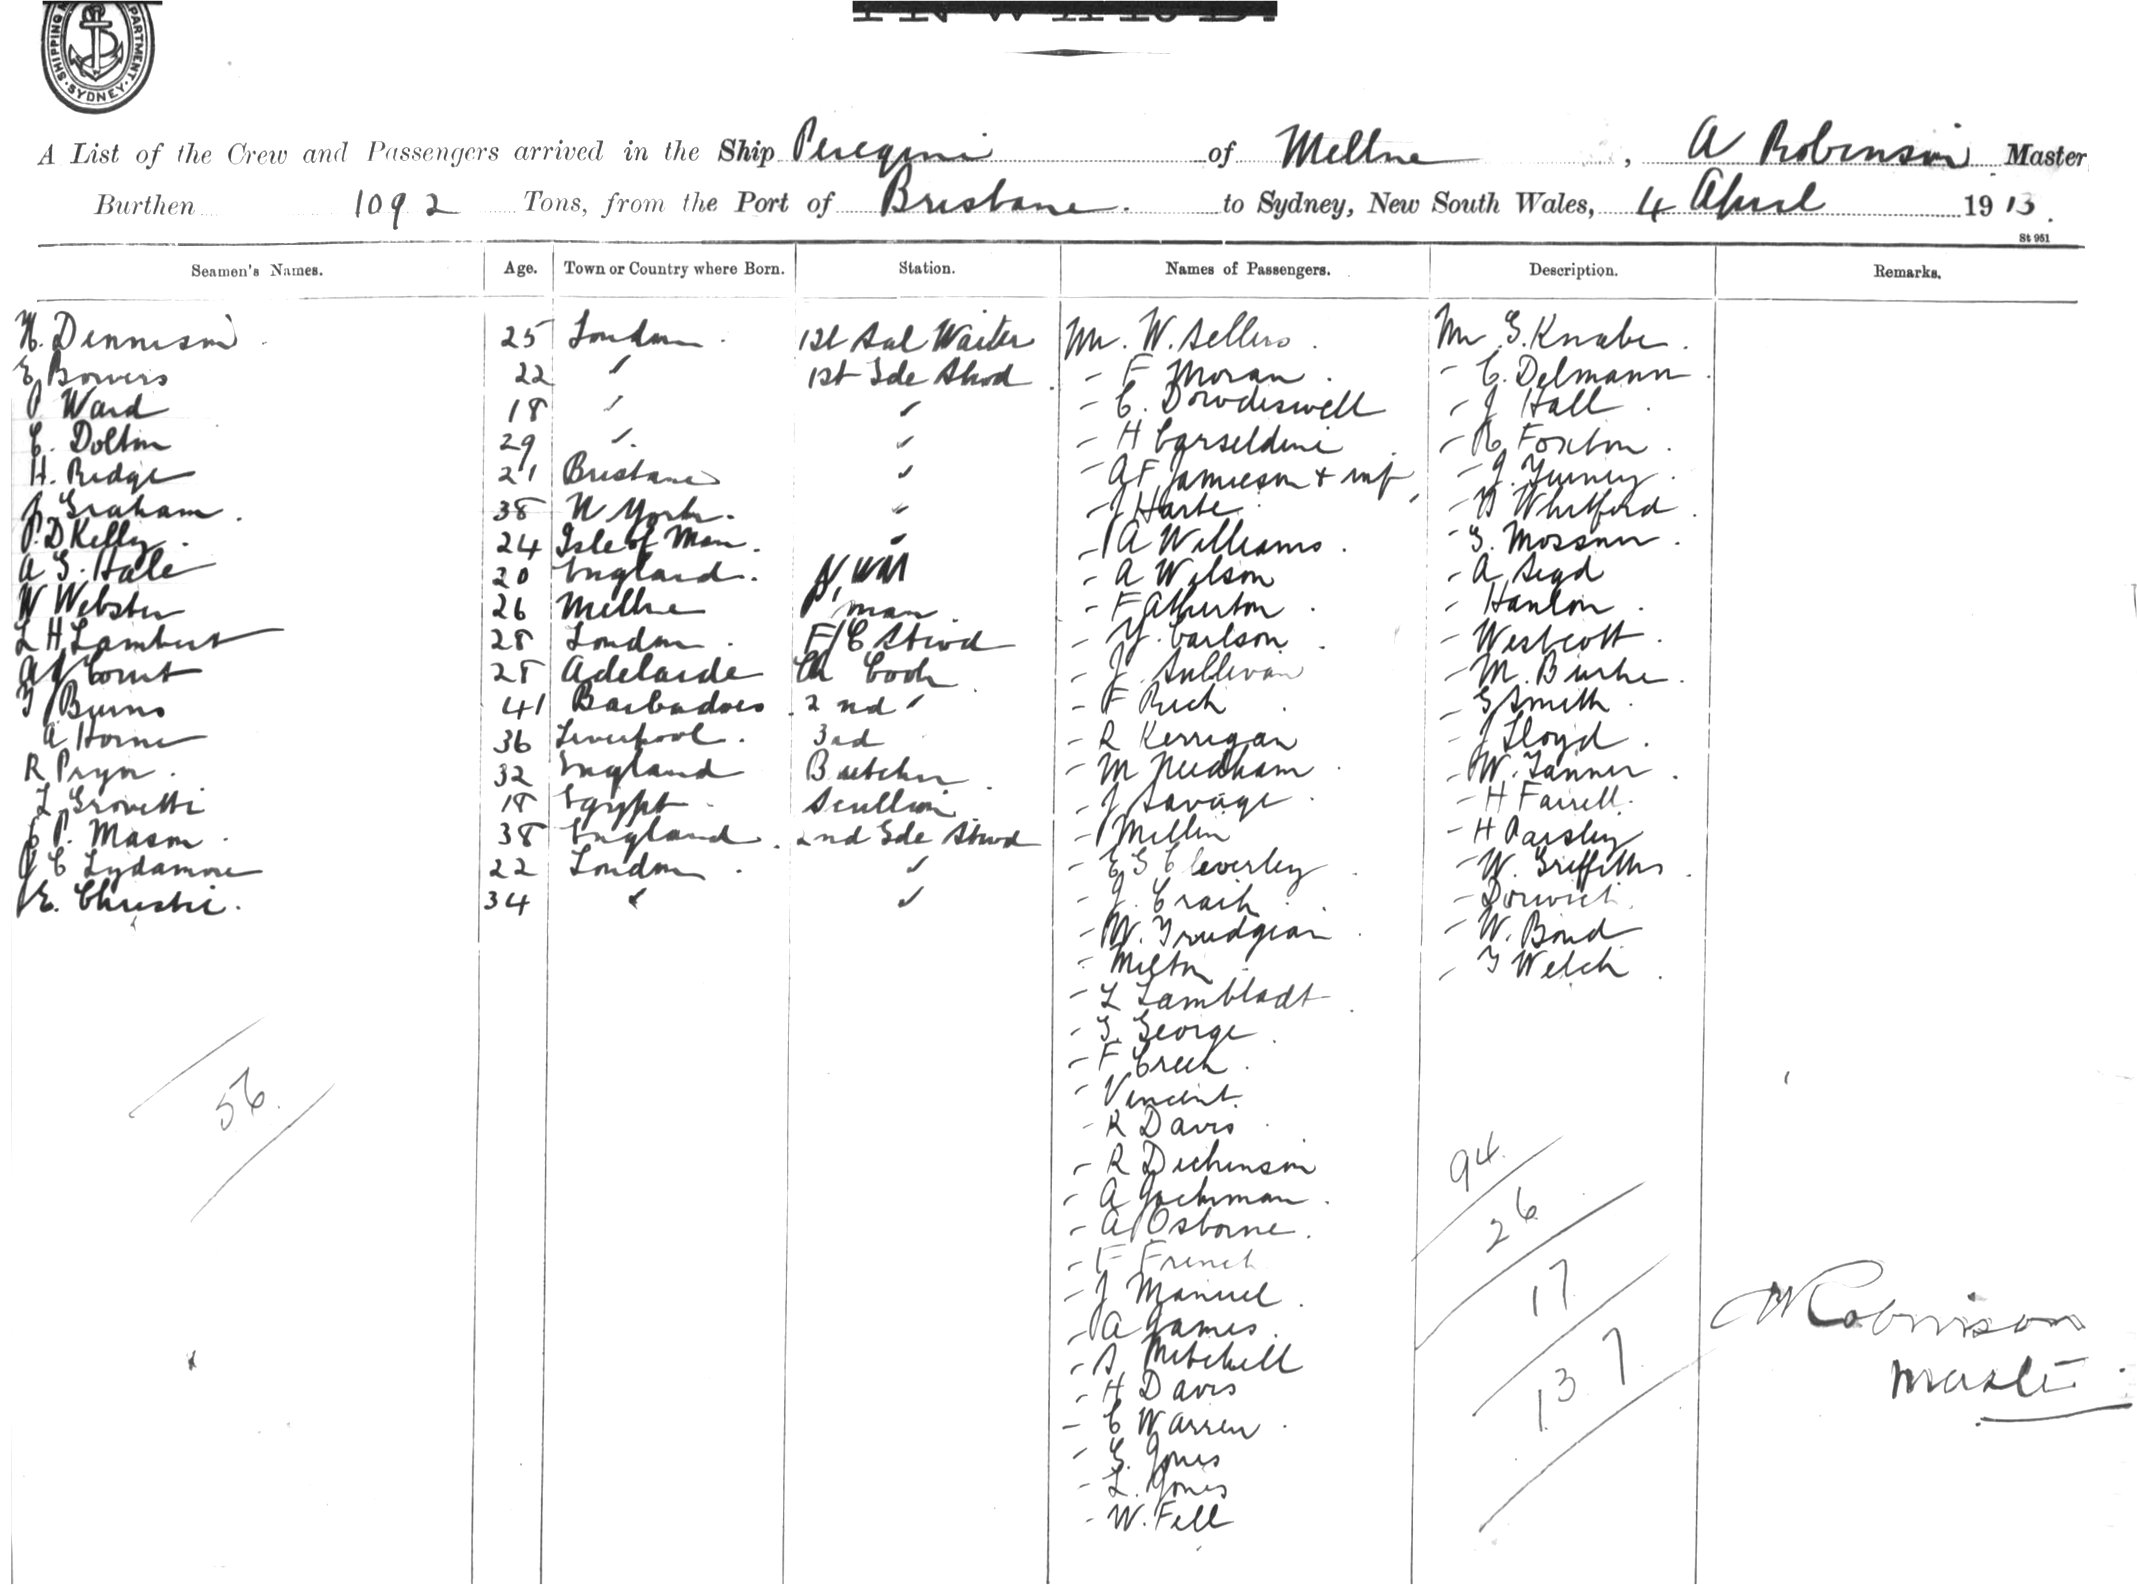 SHIPPING DEPARTMENT SYDNEY
A List of the Crew and Passengers arrived in the Ship Peregrine of Mellne, A Robinson Master
Burthen 1092 Tons, from the Port of Brisbane. to Sydney, New South Wales, 4 April 1913.
St 951
Seamen's Names. Age. Town or Country where Born. Station. Names of Passengers. Description. Remarks.
Dennison 25 London 1st Sal Waiter Mr. W. Sellers. Mr G. Knabe.
E Bowers 22 " 1st Sde Stwd - F Moran. - C. Delmann.
P Ward 18 " " - C. Dowdeswell - J Hall.
C. Dolton 29 " " - H Carseldine - Foxton.
H. Ridge 21 Brisbane " - A F Jamieson + inf, - J.
J. Graham. 38 N York. " - J Harte - Whitford.
P. D Kelly. 24 Isle of Man. " - A Williams. - G. Mossner.
A G. Hale 20 England. - A Wilson - A
W Webster 26 Mellne P'man - F Atherton. - Hanlon.
L H Lambert 28 London. F/C Stwd - Carlson. - Westcott.
A J Court 28 Adelaide Ch Cook - J. Sullivan - M. Burke.
T Burns 41 Barbadoes 2nd " - F Rich. - G Smith.
A Horne 36 Liverpool. 3rd - R Kerrigan - J Lloyd.
R Pryor. 32 England Butcher. - M Needham. - W. Tanner.
L Grovetti 18 Egypt. Scullion - J Savage. - H Farrell.
C P. Mason. 38 England. 2nd Sde Stwd - Millen - H Parsley
C Lydamore 22 London. " - E G Cleverley - W. Griffiths.
E. Christie. 34 " " - J. Craik. - Dorwich.
- W. Trudgian. - W. Bond
- Milton. - T Welch.
- L Lambladt.
- G. George.
- F Creek.
- Vincent.
- R Davis.
- R Dickinson
- A Jackman.
- A Osborne.
- F French
- J Manuel.
- A James.
- S Mitchell
- H Davis
- C Warren.
- G. Jones
- L. Jones
- W. Fell
56
94
26
17
137
Robinson
Master.